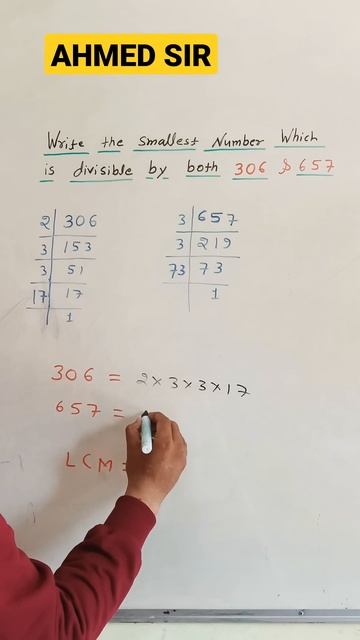 AHMED SIR
Write the smallest Number Which
is divisible by both 306 & 657
2 306
3 153
3 51
17 17
1
3 657
3 219
73 73
1
306 = 2×3×3×17
657 =
LCM =